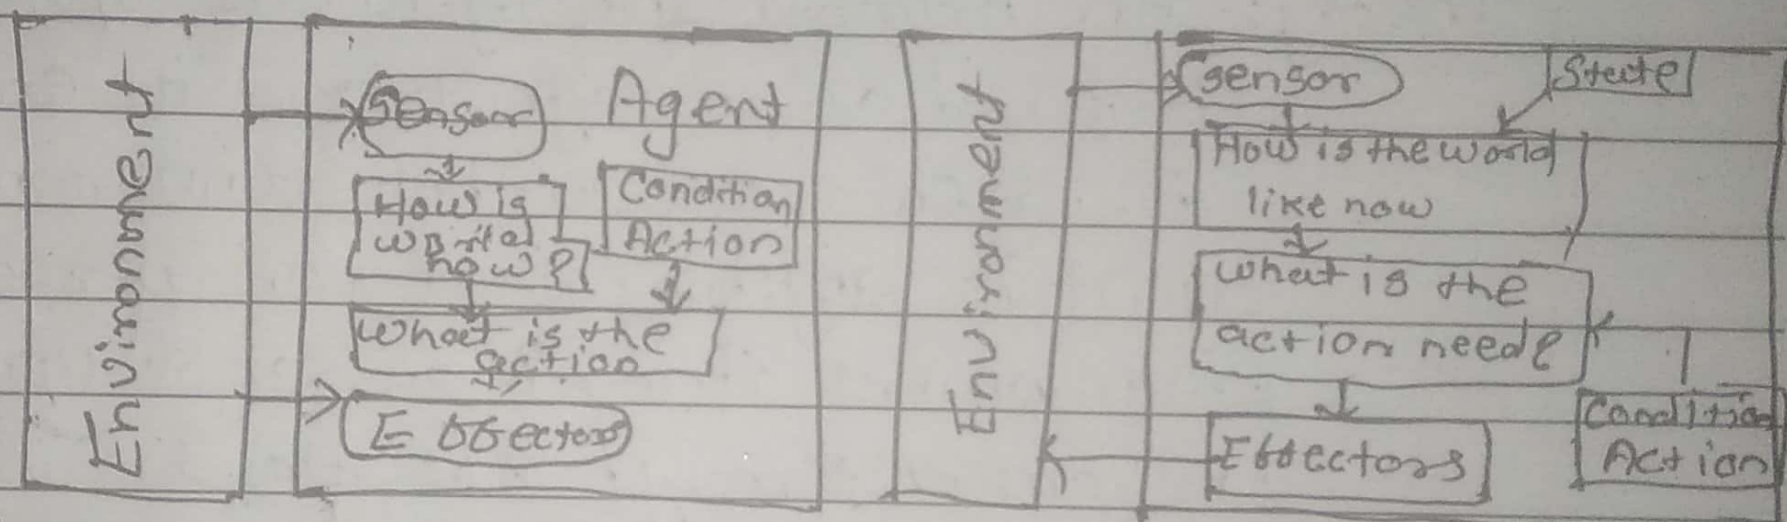 Environment
Sensor
Agent
How is
world
now?
Condition
Action
What is the
action
Effectors
Environment
Sensor
State
How is the world
like now
what is the
action neede
Condition
Action
Effectors